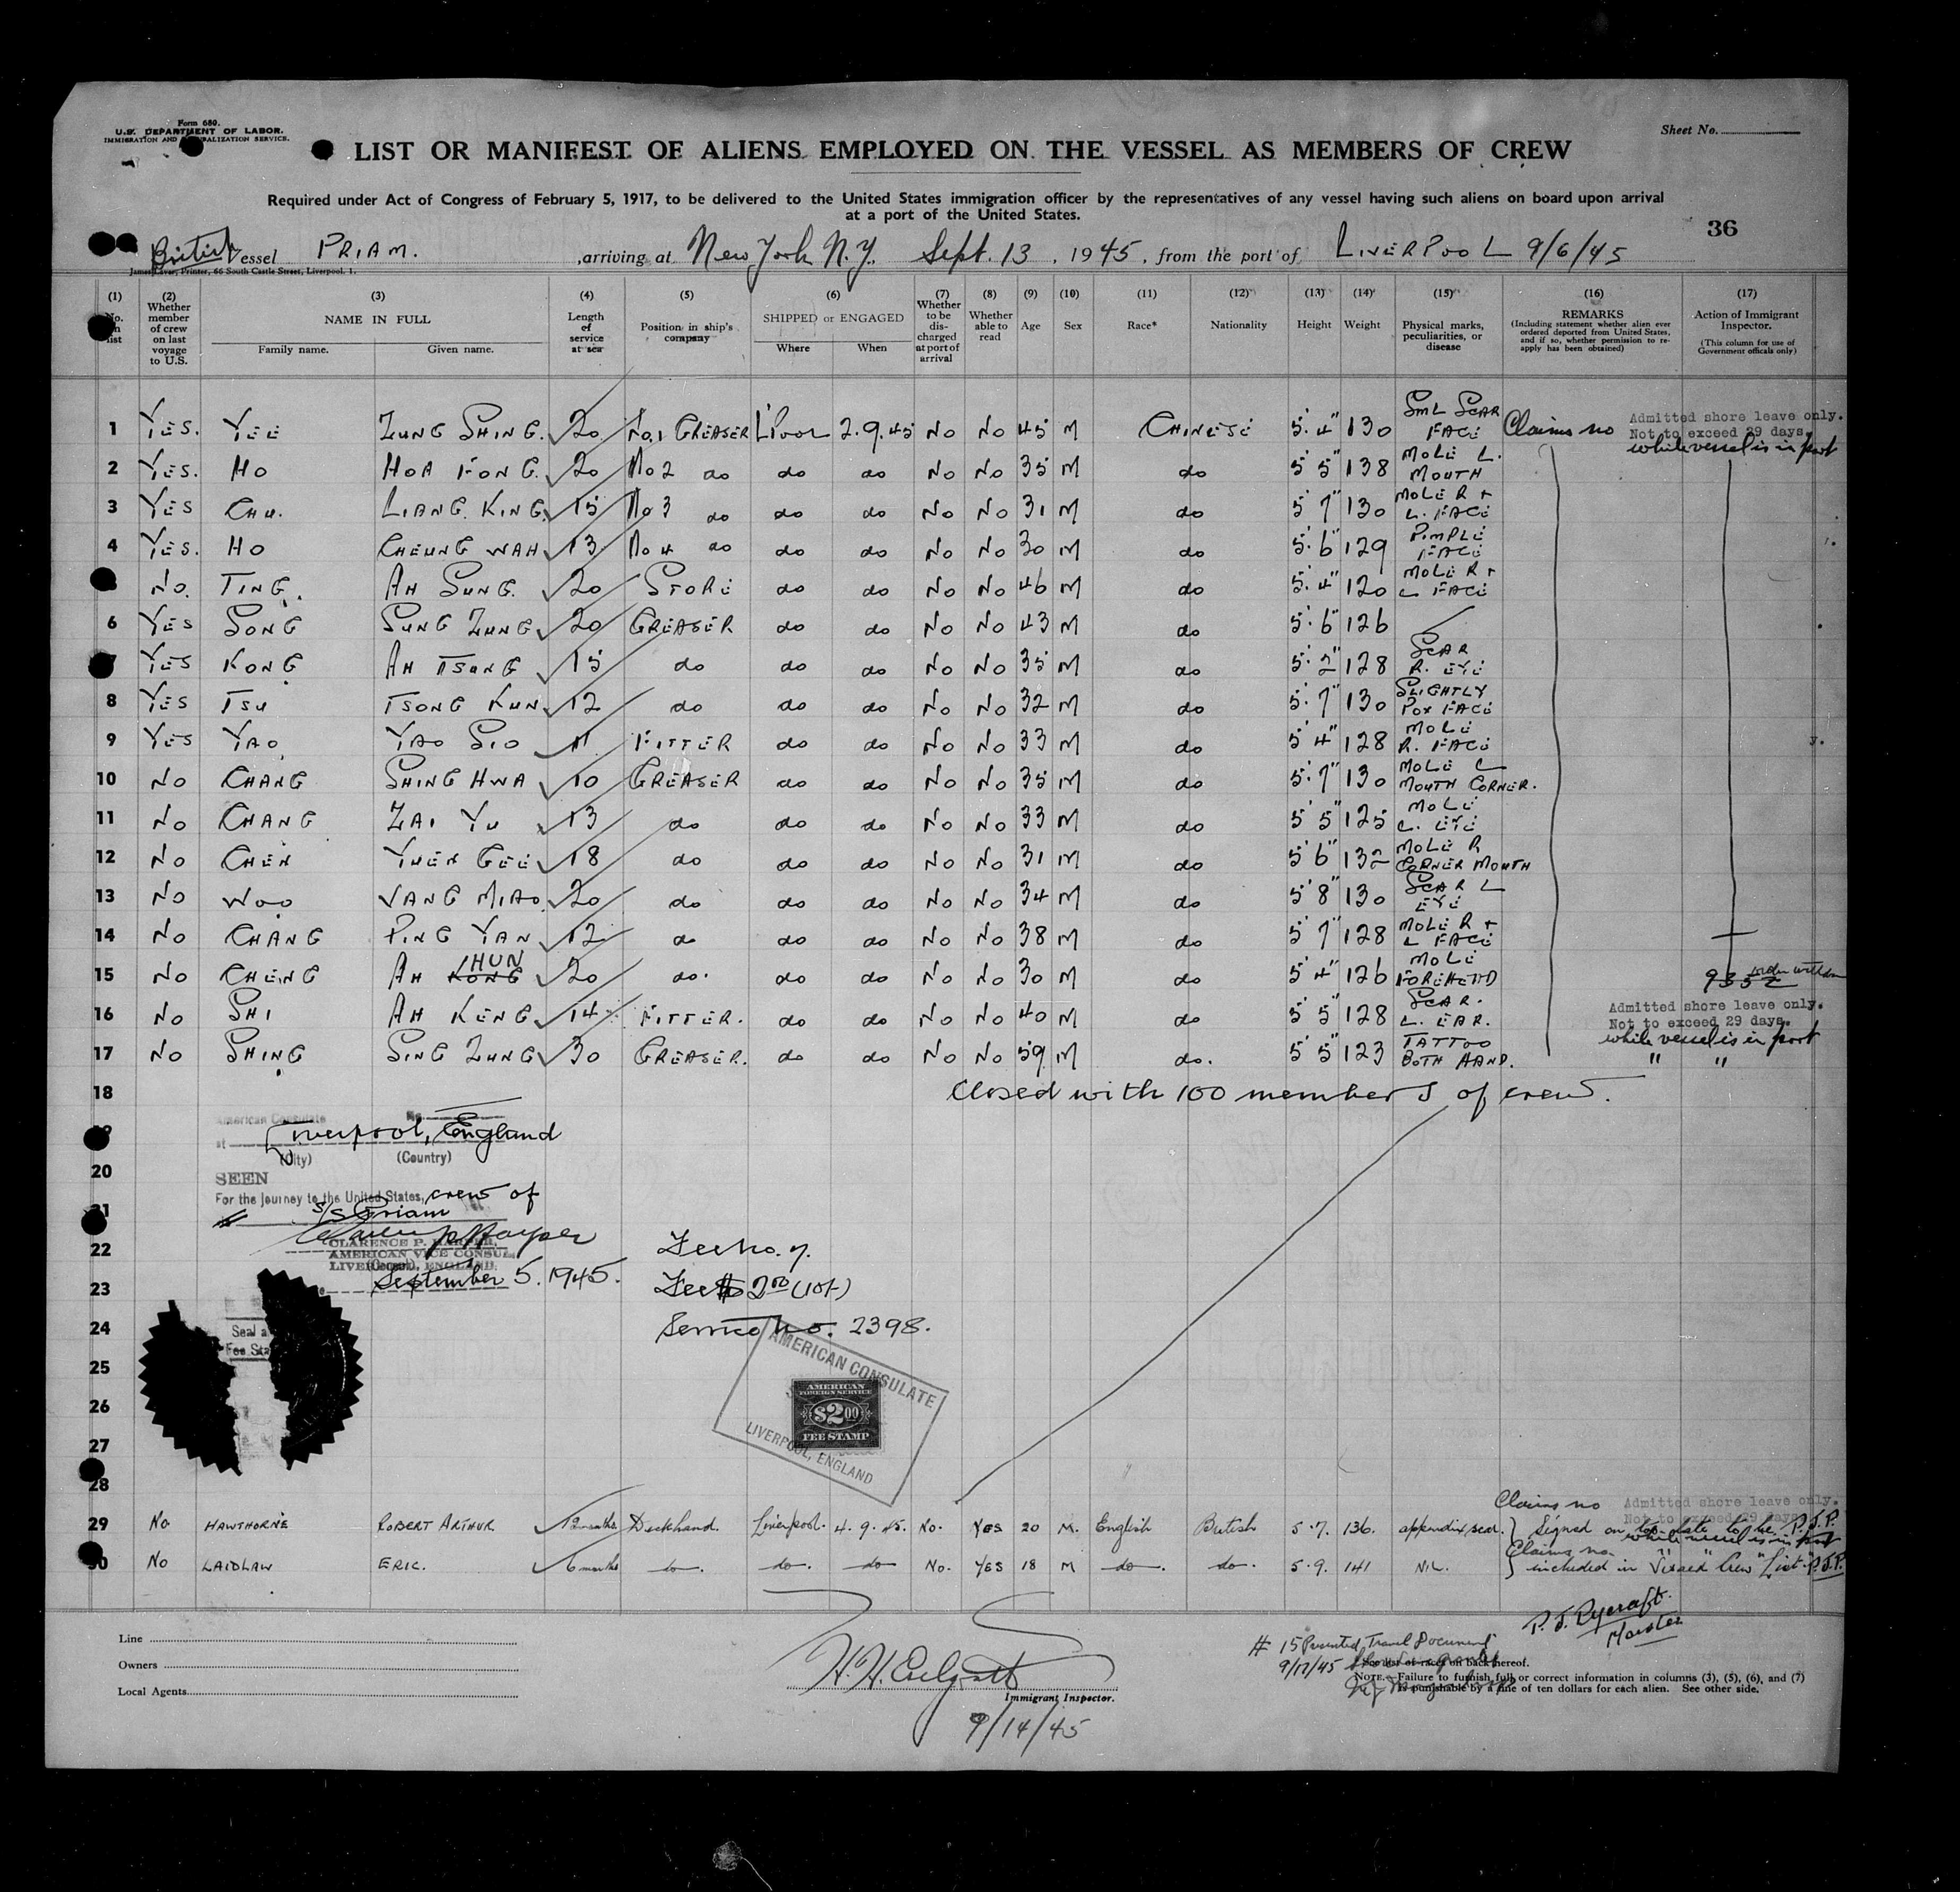 Form 680.
U.S. DEPARTMENT OF LABOR.
IMMIGRATION AND NATURALIZATION SERVICE.
Sheet No.
LIST OR MANIFEST OF ALIENS EMPLOYED ON THE VESSEL AS MEMBERS OF CREW
Required under Act of Congress of February 5, 1917, to be delivered to the United States immigration officer by the representatives of any vessel having such aliens on board upon arrival
at a port of the United States.
36
British Vessel PRIAM. , arriving at New York N.Y. Sept. 13, 1945, from the port of LIVERPOOL 9/6/45
James Laver, Printer, 66 South Castle Street, Liverpool. 1.
(1) No. on list (2) Whether member of crew on last voyage to U.S. (3) NAME IN FULL Family name. Given name. (4) Length of service at sea (5) Position in ship's company (6) SHIPPED or ENGAGED Where When (7) Whether to be discharged at port of arrival (8) Whether able to read (9) Age (10) Sex (11) Race* (12) Nationality (13) Height (14) Weight (15) Physical marks, peculiarities, or disease (16) REMARKS (Including statement whether alien ever ordered deported from United States, and if so, whether permission to re-apply has been obtained) (17) Action of Immigrant Inspector. (This column for use of Government officials only)
1 YES. YEE ZUNG SHING. 20 No.1 GREASER L'POOL 2.9.45 No No 45 M CHINESE 5'4" 130 SML SCAR FACE Claims no Admitted shore leave only. Not to exceed 29 days. while vessel is in port
2 YES. HO HOA FONG. 20 No 2 do do do No No 35 M do 5'5" 138 MOLE L. MOUTH
3 YES CHU. LIANG KING. 15 No 3 do do do No No 31 M do 5'7" 130 MOLE R + L. FACE
4 YES. HO CHEUNG WAH 13 No 4 do do do No No 30 M do 5'6" 129 PIMPLE FACE
No. TING. AH SUNG. 20 STORE do do No No 46 M do 5'4" 120 MOLE R + L FACE
6 YES SONG SUNG ZUNG 20 GREASER do do No No 43 M do 5'6" 126
7 YES KONG AH TSUNG 15 do do do No No 35 M do 5'2" 128 SCAR R. EYE
8 YES TSU TSONG KUN 12 do do do No No 32 M do 5'7" 130 SLIGHTLY POX FACE
9 YES YAO YAO SIO 11 FITTER do do No No 33 M do 5'4" 128 MOLE R. FACE
10 No CHANG SHING HWA 10 GREASER do do No No 35 M do 5'7" 130 MOLE L MOUTH CORNER.
11 No CHANG ZAI YU 13 do do do No No 33 M do 5'5" 125 MOLE L. EYE
12 No CHEN YUEN GEE 18 do do do No No 31 M do 5'6" 132 MOLE R CORNER MOUTH
13 No WOO VANG MIAO 20 do do do No No 34 M do 5'8" 130 SCAR L EYE
14 No CHANG PING YAN 12 do do do No No 38 M do 5'7" 128 MOLE R + L FACE
15 No CHENG AH KONG HUN 20 do. do do No No 30 M do 5'4" 126 MOLE FOREHEAD 9352
16 No SHI AH KENG 14 FITTER. do do No No 40 M do 5'5" 128 SCAR. L. EAR. Admitted shore leave only. Not to exceed 29 days. while vessel is in port
17 No SHING SING ZUNG 30 GREASER. do do No No 59 M do. 5'5" 123 TATTOO BOTH HAND. " "
18 Closed with 100 members of crew.
American Consulate No.
at Liverpool, England
(City) (Country)
20
SEEN
For the journey to the United States, crew of
S/S Priam
22 CLARENCE P. HARPER,
AMERICAN VICE CONSUL,
LIVERPOOL, ENGLAND.
September 5, 1945.
Fee No. 7.
23 Fee $ 2.00 (10/-)
24 Service No. 2398.
Seal a
Fee Sta
25
26
27
28
AMERICAN CONSULATE
AMERICAN
FOREIGN SERVICE
$2.00
FEE STAMP
LIVERPOOL, ENGLAND
29 No HAWTHORNE ROBERT ARTHUR months Deckhand. Liverpool. 4.9.45. No. YES 20 M. English British 5.7. 136. appendix scar. Claims no Admitted shore leave only. Not to exceed 29 days. while vessel is in port Signed on too late to be P.J.P.
30 No LAIDLAW ERIC. 6 months do. do. do No. YES 18 M do. do. 5.9. 141 NIL. Claims no " " included in Visaed Crew List. P.J.P.
P. J. Rycraft.
Master
Line
Owners
Local Agents
Immigrant Inspector.
9/14/45
# 15 Presented Travel Document
9/17/45
*See list of races on back hereof.
NOTE.—Failure to furnish full or correct information in columns (3), (5), (6), and (7)
is punishable by a fine of ten dollars for each alien. See other side.